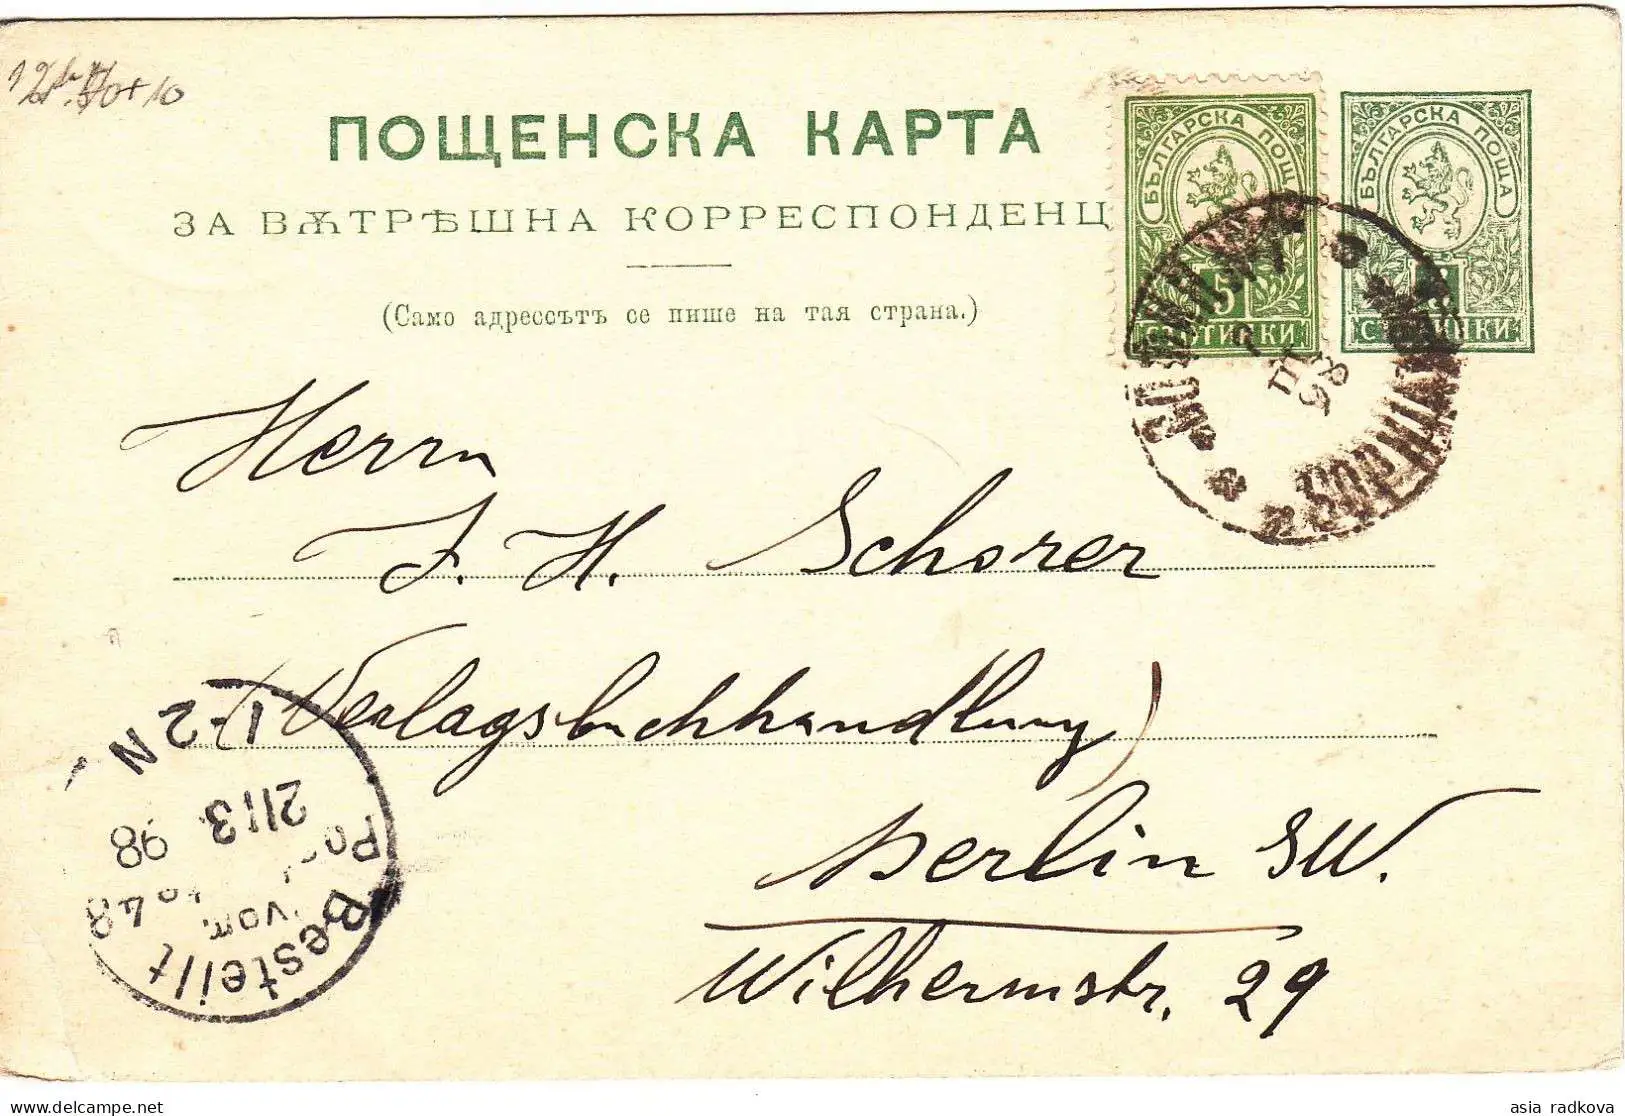 ПОЩЕНСКА КАРТА
ЗА ВѪТРѢШНА КОРРЕСПОНДЕНЦ
(Само адрессътъ се пише на тая страна.)
БЪЛГАРСКА ПОЩ
5
СТОТИНКИ
БЪЛГАРСКА ПОЩА
СТОТИНКИ
III
98
Herrn
J. H. Schorer
(Verlagsbuchhandlung)
Berlin SW.
Wilhelmstr. 29
Bestellt
vom
Post
48
21/3
98
1-2N
delcampe.net
asia radkova